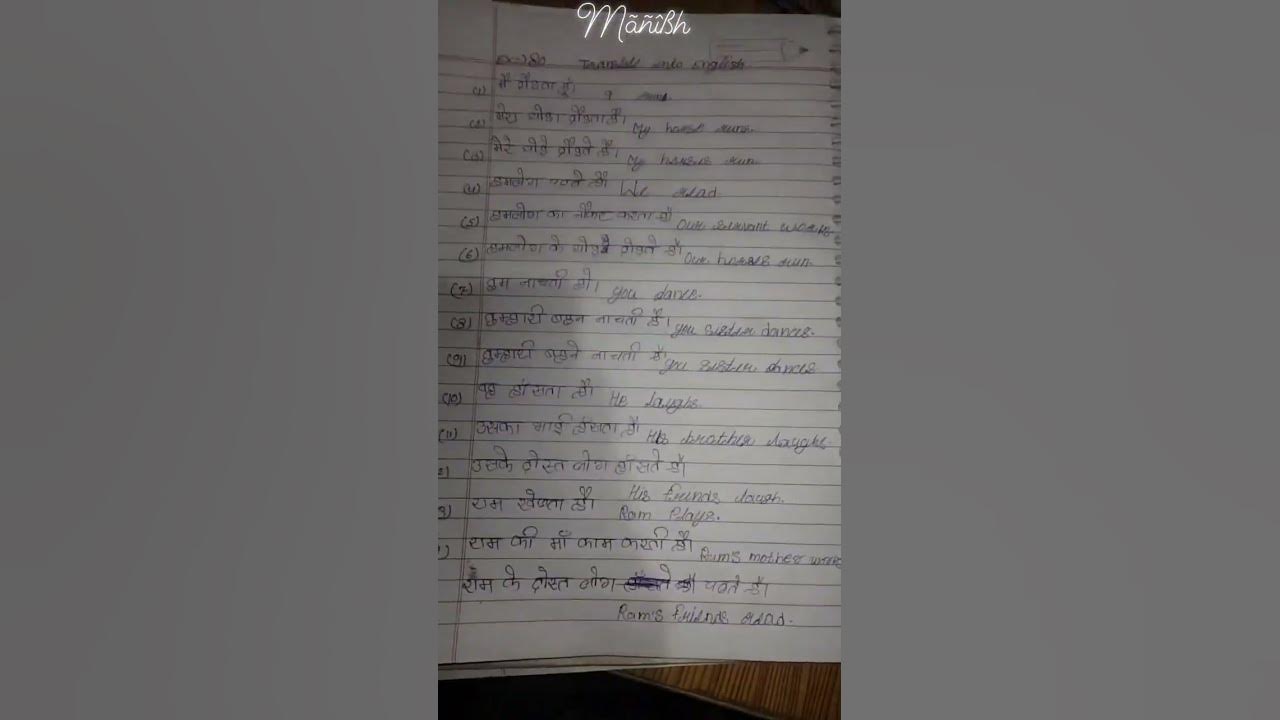 Mãñîßh
Translate into English
(1) मैं दौड़ता हूँ। I
(2) मेरा घोड़ा दौड़ता है। My horse runs.
(3) मेरे घोड़े दौड़ते हैं। My horses run.
(4) हमलोग पढ़ते हैं। We read
(5) हमलोग का नौकर करता है our servant works
(6) हमलोग के घोड़े दौड़ते हैं Our horses run.
(7) तुम नाचती हो। you dance.
(8) तुम्हारी बहन नाचती है। you sister dances.
(9) तुम्हारी बहने नाचती है। you sister dances
(10) वह हंसता है। He laughs.
(11) उसका भाई हंसता है। His brother laughs.
उसके दोस्त लोग हंसते हैं।
His friends laugh.
राम खेलता है। Ram Plays.
राम की माँ काम करती है। Ram's mother works
राम के दोस्त लोग पढते है।
Ram's friends read.